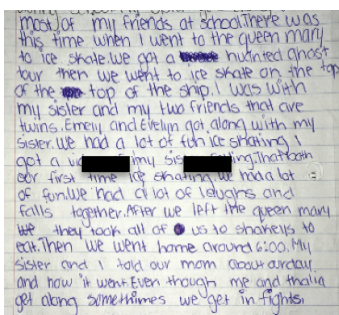 most of my friends at school. There was
this time when I went to the queen mary
to ice skate. We got a hunited ghost
tour then we went to ice skate on the top
of the top of the ship. I was with
my sister and my two friends that are
twins. Emely and Evelyn got along with my
sister. We had a lot of fun ice shating I
got a my sis
our first time ice shating. We had a lot
of fun. We had a lot of laughs and
falls together. After we left the queen mary
they took all of us to shakeys to
eat. Then we went home around 6:00. My
sister and I told our mom about our day
and how it went. Even though me and thalia
get along somethimes we get in fights.